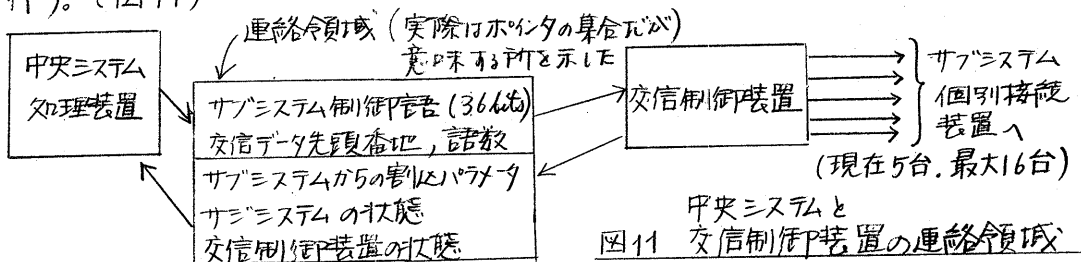 行う。(図11)
連絡領域(実際はポインタの集合だが)
意味する所を示した
中央システム
処理装置
サブシステム制御語(36bits)
交信データ先頭番地,語数
サブシステムからの割込パラメータ
サブシステムの状態
交信制御装置の状態
交信制御装置
サブシステム
個別接続
装置へ
(現在5台.最大16台)
中央システムと
図11 交信制御装置の連絡領域